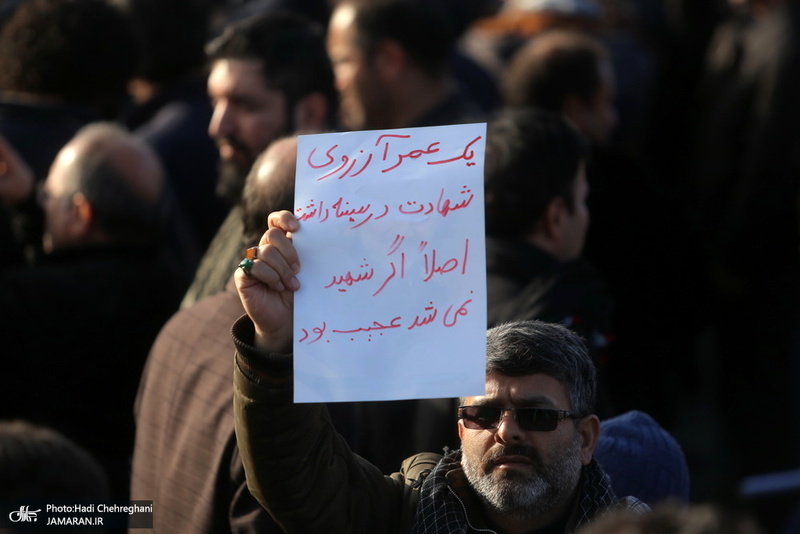 یک عمر آرزوی
شهادت در سینه داشت
اصلاً اگر شهید
نمی شد عجیب بود
Photo:Hadi Chehreghani
JAMARAN.IR